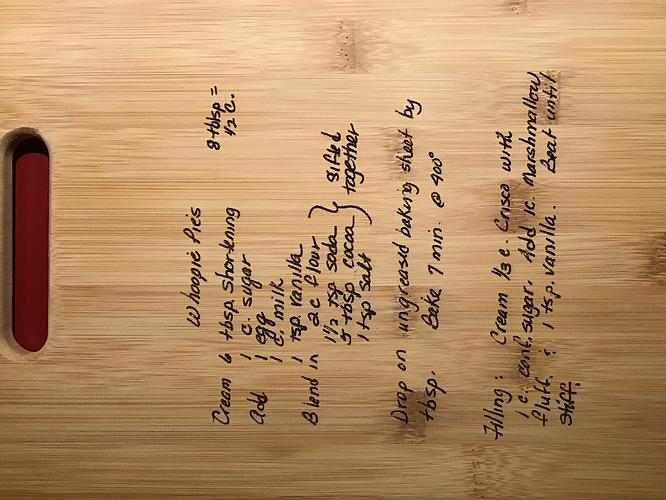 8 tblsp =
1/2 c.
Whoopie Pies
Cream 6 tbsp. shortening
1 c. sugar
Add 1 egg
1 c. milk
Blend in 1 tsp. vanilla
2 c flour
1 1/2 tsp soda
5 tbsp cocoa
1 tsp salt
} sifted
together
Drop on ungreased baking sheet by
tbsp. Bake 7 min. @ 400°
Filling: Cream 1/3 c. Crisco with
1 c. conf. sugar. Add 1c. Marshmallow
fluff. & 1 tsp. vanilla. Beat until
stiff.